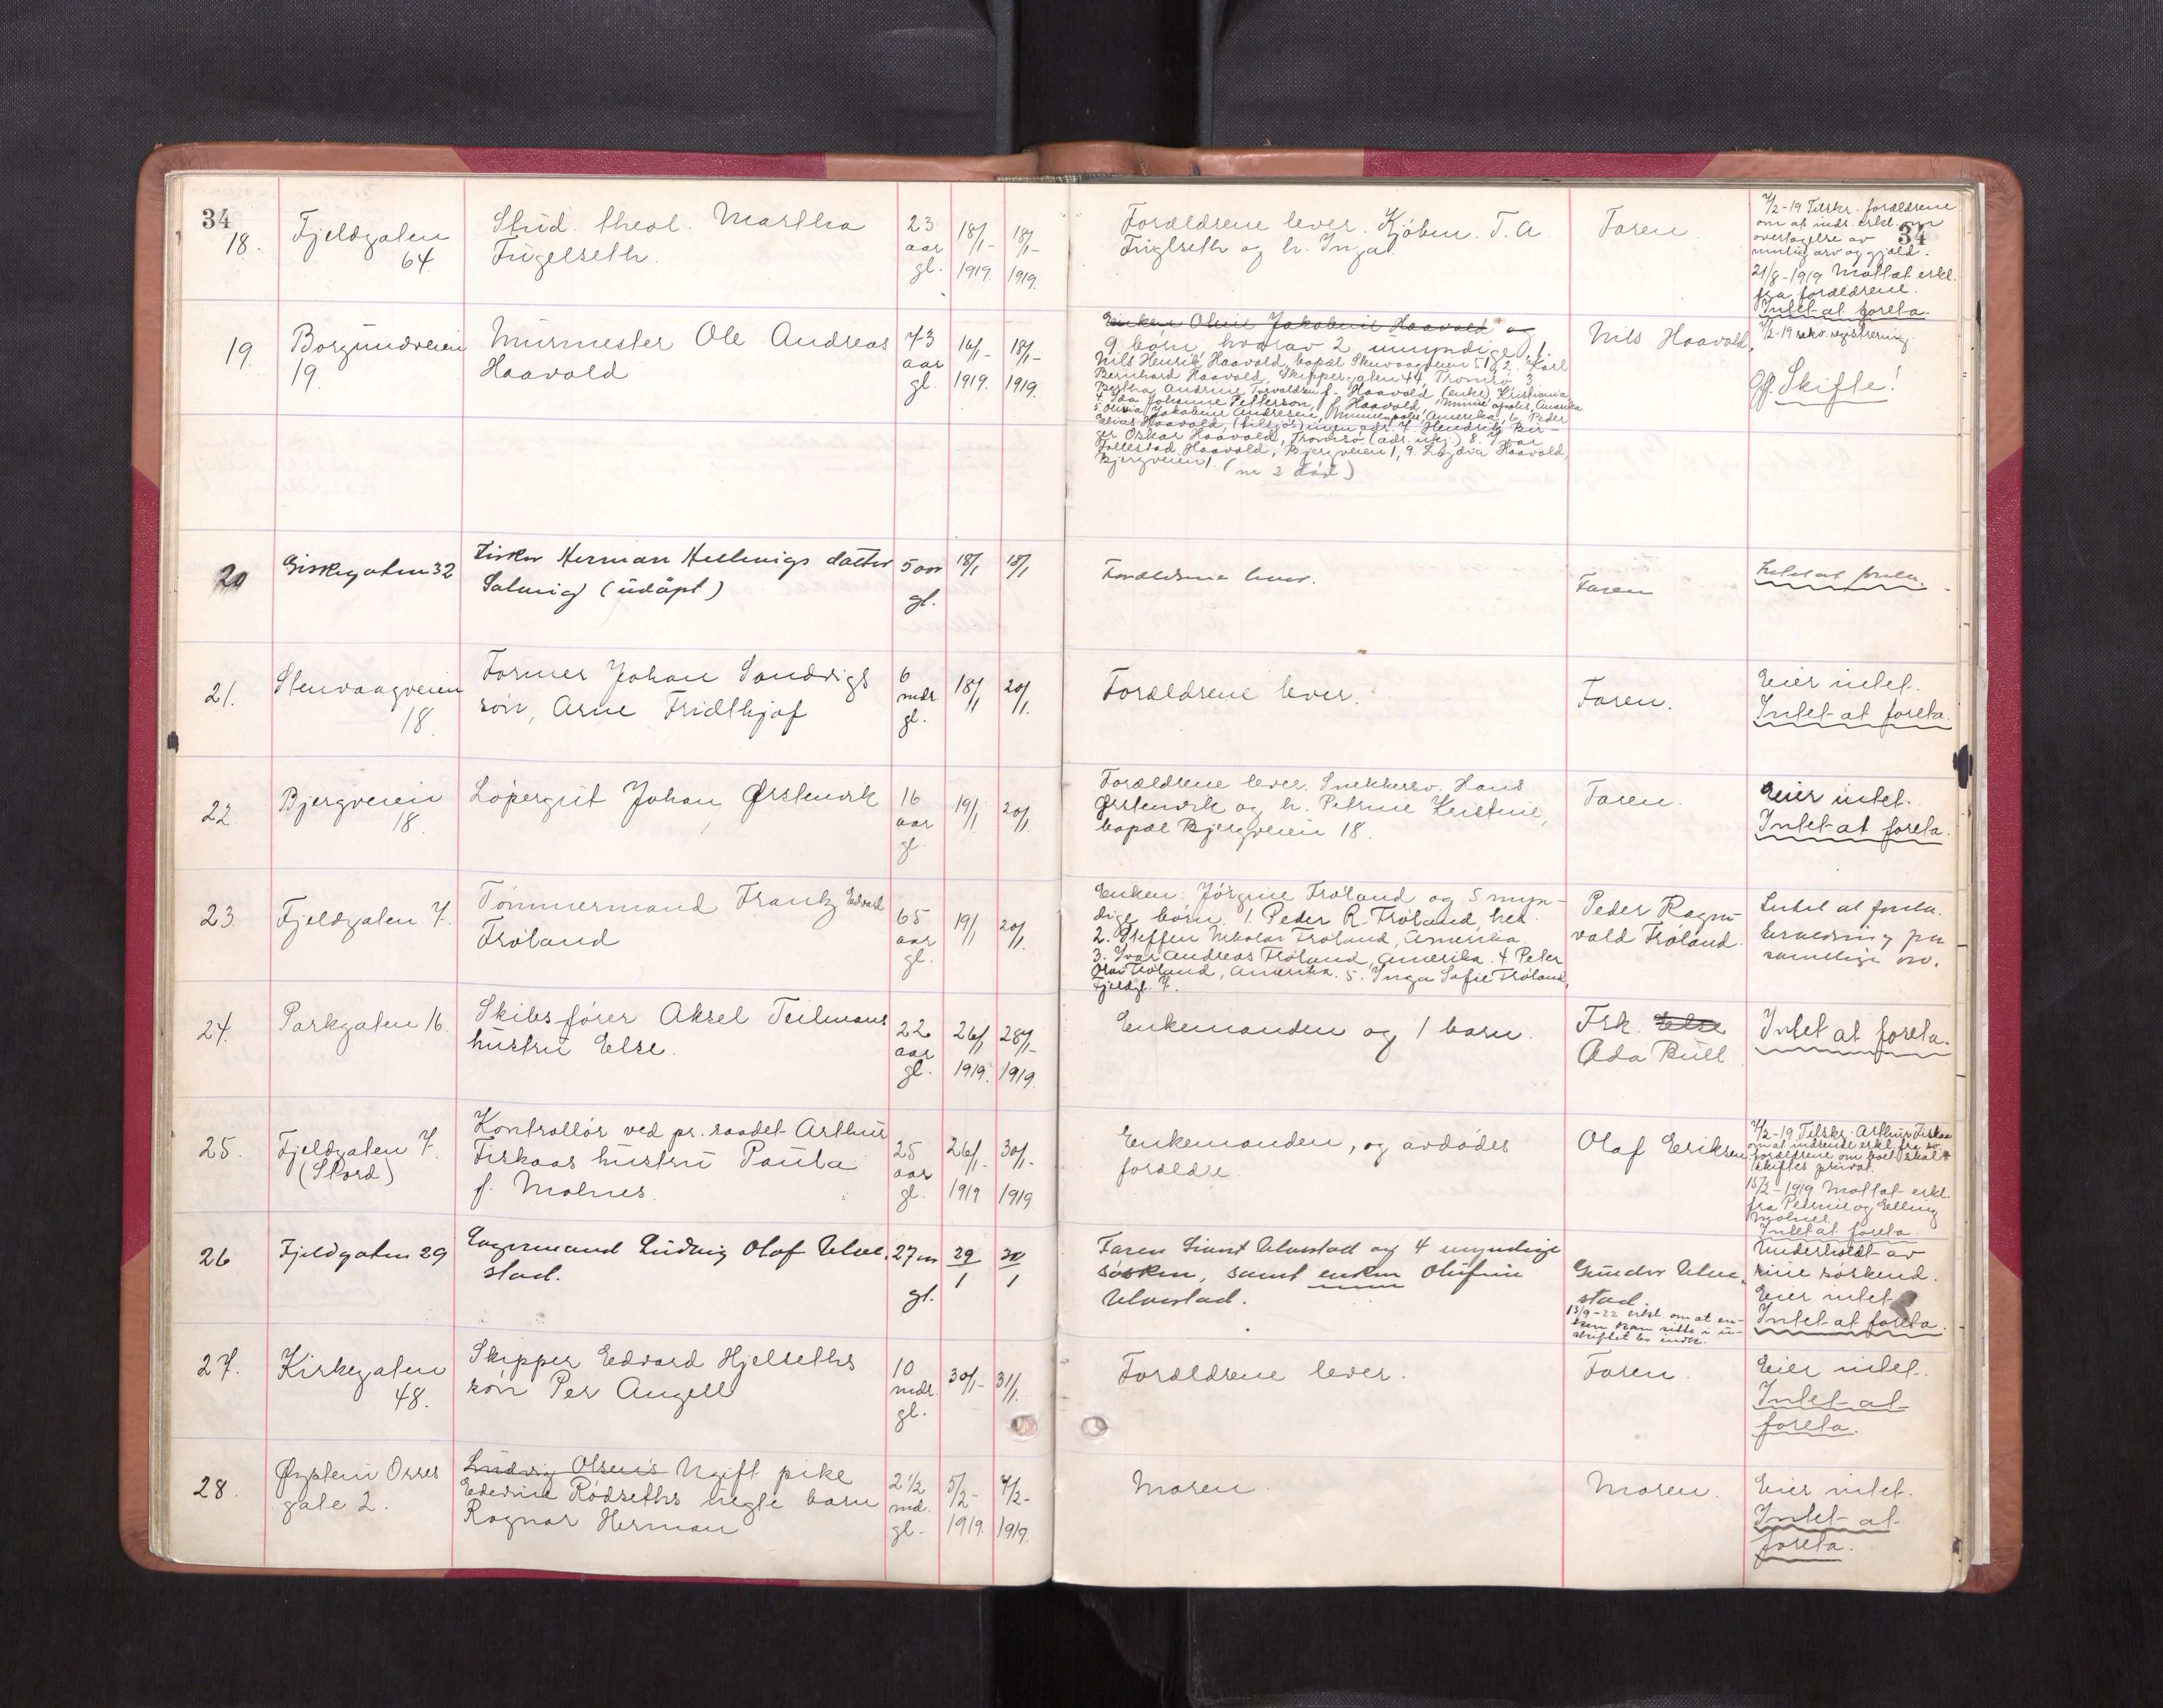 34
34
18.
Fjeldgaten
64
Stud. theol. Martha
Fuglseth.
23
aar
gl.
18/1-
1919.
18/1-
1919.
Forældrene lever. Kjøbm. T. A.
Fuglseth og h. Inga.
Faren.
7/2-19 Tilskr. forældrene
om at inds. erkl. om
overtagelse av
mulig arv og gjæld.
21/8-1919 Mottat erkl.
fra forældrene.
Intet at foreta.
19.
Borgundveien
19.
Murmester Ole Andreas
Haavold
73
aar
gl.
16/1-
1919.
18/1-
1919.
Enken Oline Jakobine Haavold og
9 barn, hvorav 2 umyndige. 1.
Nils Henrik Haavold, bopæl Stenvaagveien 51, 2. Karl
Bernhard Haavold, Skippergaten 44, Tromsø 3.
Bertha Andrine Torvaldsen f. Haavold (enke), Kristiania
4. Ida Johanne Petterson, f. Haavold, Minneapolis, Amerika
5. Olivia Jakobine Andresen, Minneapolis, Amerika, 6. Peder
Elias Haavold, (tilsjøs) ingen adr. 7. Hendrik Bir-
ger Oskar Haavold, Tromsø (adr. ukj.) 8. Ivar
Follestad Haavold, Bjergveien 1, 9. Lydia Haavold,
Bjergveien 1. (nr 2 død)
Nils Haavold.
7/2-19 rekv. registrering
Off. Skifte!
20
Giskegaten 32
Fisker Herman Hellevigs datter
Solveig (udøpt)
5 aar
gl.
18/1
18/1
Forældrene lever.
Faren
Intet at foreta.
21.
Stenvaagveien
18.
Former Johan Sandvigs
søn, Arne Fridthjof
6
mdr.
gl.
18/1
20/1.
Forældrene lever.
Faren.
Eier intet.
Intet at foreta.
22
Bjergveien
18.
Løpergut Johan Ørstenvik
16
aar
gl.
19/1
20/1.
Forældrene lever. Snekkersv. Hans
Ørstenvik og h. Petrine Kristine,
bopæl Bjergveien 18.
Faren.
Eier intet.
Intet at foreta.
23.
Fjeldgaten 7.
Tømmermand Frantz Edvard
Frøland
65
aar
gl.
19/1
20/1.
Enken: Jørgine Frøland og 5 myn-
dige barn. 1 Peder R. Frøland, her
2. Steffen Nikolai Frøland, Amerika
3. Ivar Andreas Frøland, Amerika. 4 Peter
Olai Frøland, Amerika. 5. Inga Sofie Frøland,
Fjeldgt. 7.
Peder Ragn-
vald Frøland.
Intet at foreta.
24.
Parkgaten 16.
Skibsfører Aksel Teilmans
hustru Else.
22
aar
gl.
26/1
1919.
28/1-
1919.
Enkemanden og 1 barn.
Frk. Else
Ada Bull
Intet at foreta.
25.
Fjeldgaten 7.
(Stord)
Kontrollør ved pr. raadet Arthur
Fiskaas hustru Paula
f. Molnes.
25
aar
gl.
26/1-
1919
30/1-
1919
Enkemanden, og avdødes
forældre.
Olaf Eriksen
7/2-19 Tilskr. Arthur Fiskaa
om at indsende erkl. fra sv.
forældrene om boet skal
skiftes privat.
15/2-1919 Mottat erkl.
fra Petrine og Elling
Molnes.
Intet at foreta.
26
Fjeldgaten 29
Lagermand Ludvig Olaf Ulve-
stad.
27 aar
gl.
29/1
30/1
Faren Sivert Ulvestad og 4 umyndige
søsken, samt enken Olufine
Ulvestad.
Gunder Ulve-
stad.
13/9-22 erkl. om at en-
ken kan sitte i u-
skiftet bo inds.
Underholdt av
sine søskend.
Eier intet.
Intet at foreta.
27.
Kirkegaten
48.
Skipper Edvard Hjelseths
søn Per Angell
10
mdr.
gl.
30/1-
31/1.
Forældrene lever.
Faren.
Eier intet.
Intet at
foreta.
28.
Øystein Orres
gate 2.
Ludvig Olsens Ugift pike
Rødseths uegte barn
Ragnar Herman
2 1/2
md.
gl.
5/2-
1919.
7/2-
1919.
Moren.
Moren.
Eier intet.
Intet at
foreta.